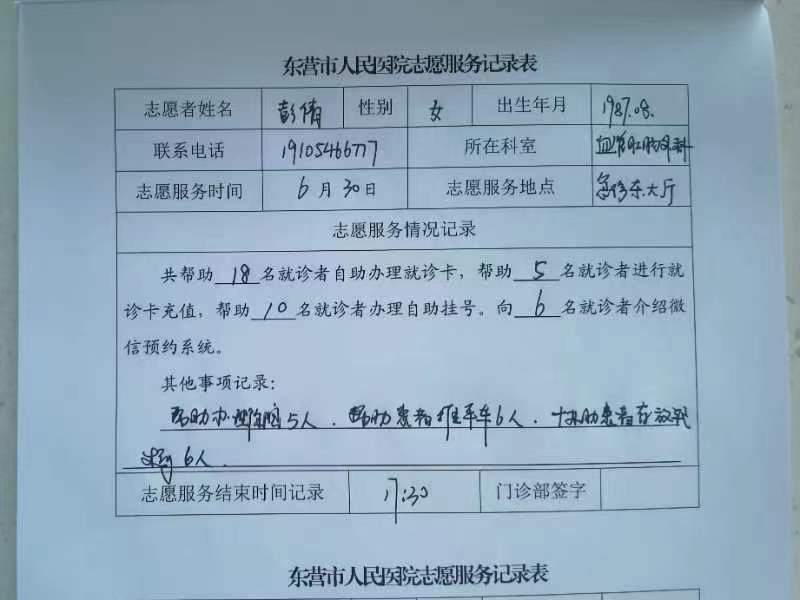 东营市人民医院志愿服务记录表
志愿者姓名 彭倩 性别 女 出生年月 1987.08.
联系电话 19105466777 所在科室 血管肛肠外科
志愿服务时间 6月30日 志愿服务地点 急诊东大厅
志愿服务情况记录
共帮助 18 名就诊者自助办理就诊卡，帮助 5 名就诊者进行就
诊卡充值，帮助 10 名就诊者办理自助挂号。向 6 名就诊者介绍微
信预约系统。
其他事项记录：
帮助办 5人．帮助患者推平车6人．协助患者存放
6人．
志愿服务结束时间记录 17:30 门诊部签字
东营市人民医院志愿服务记录表